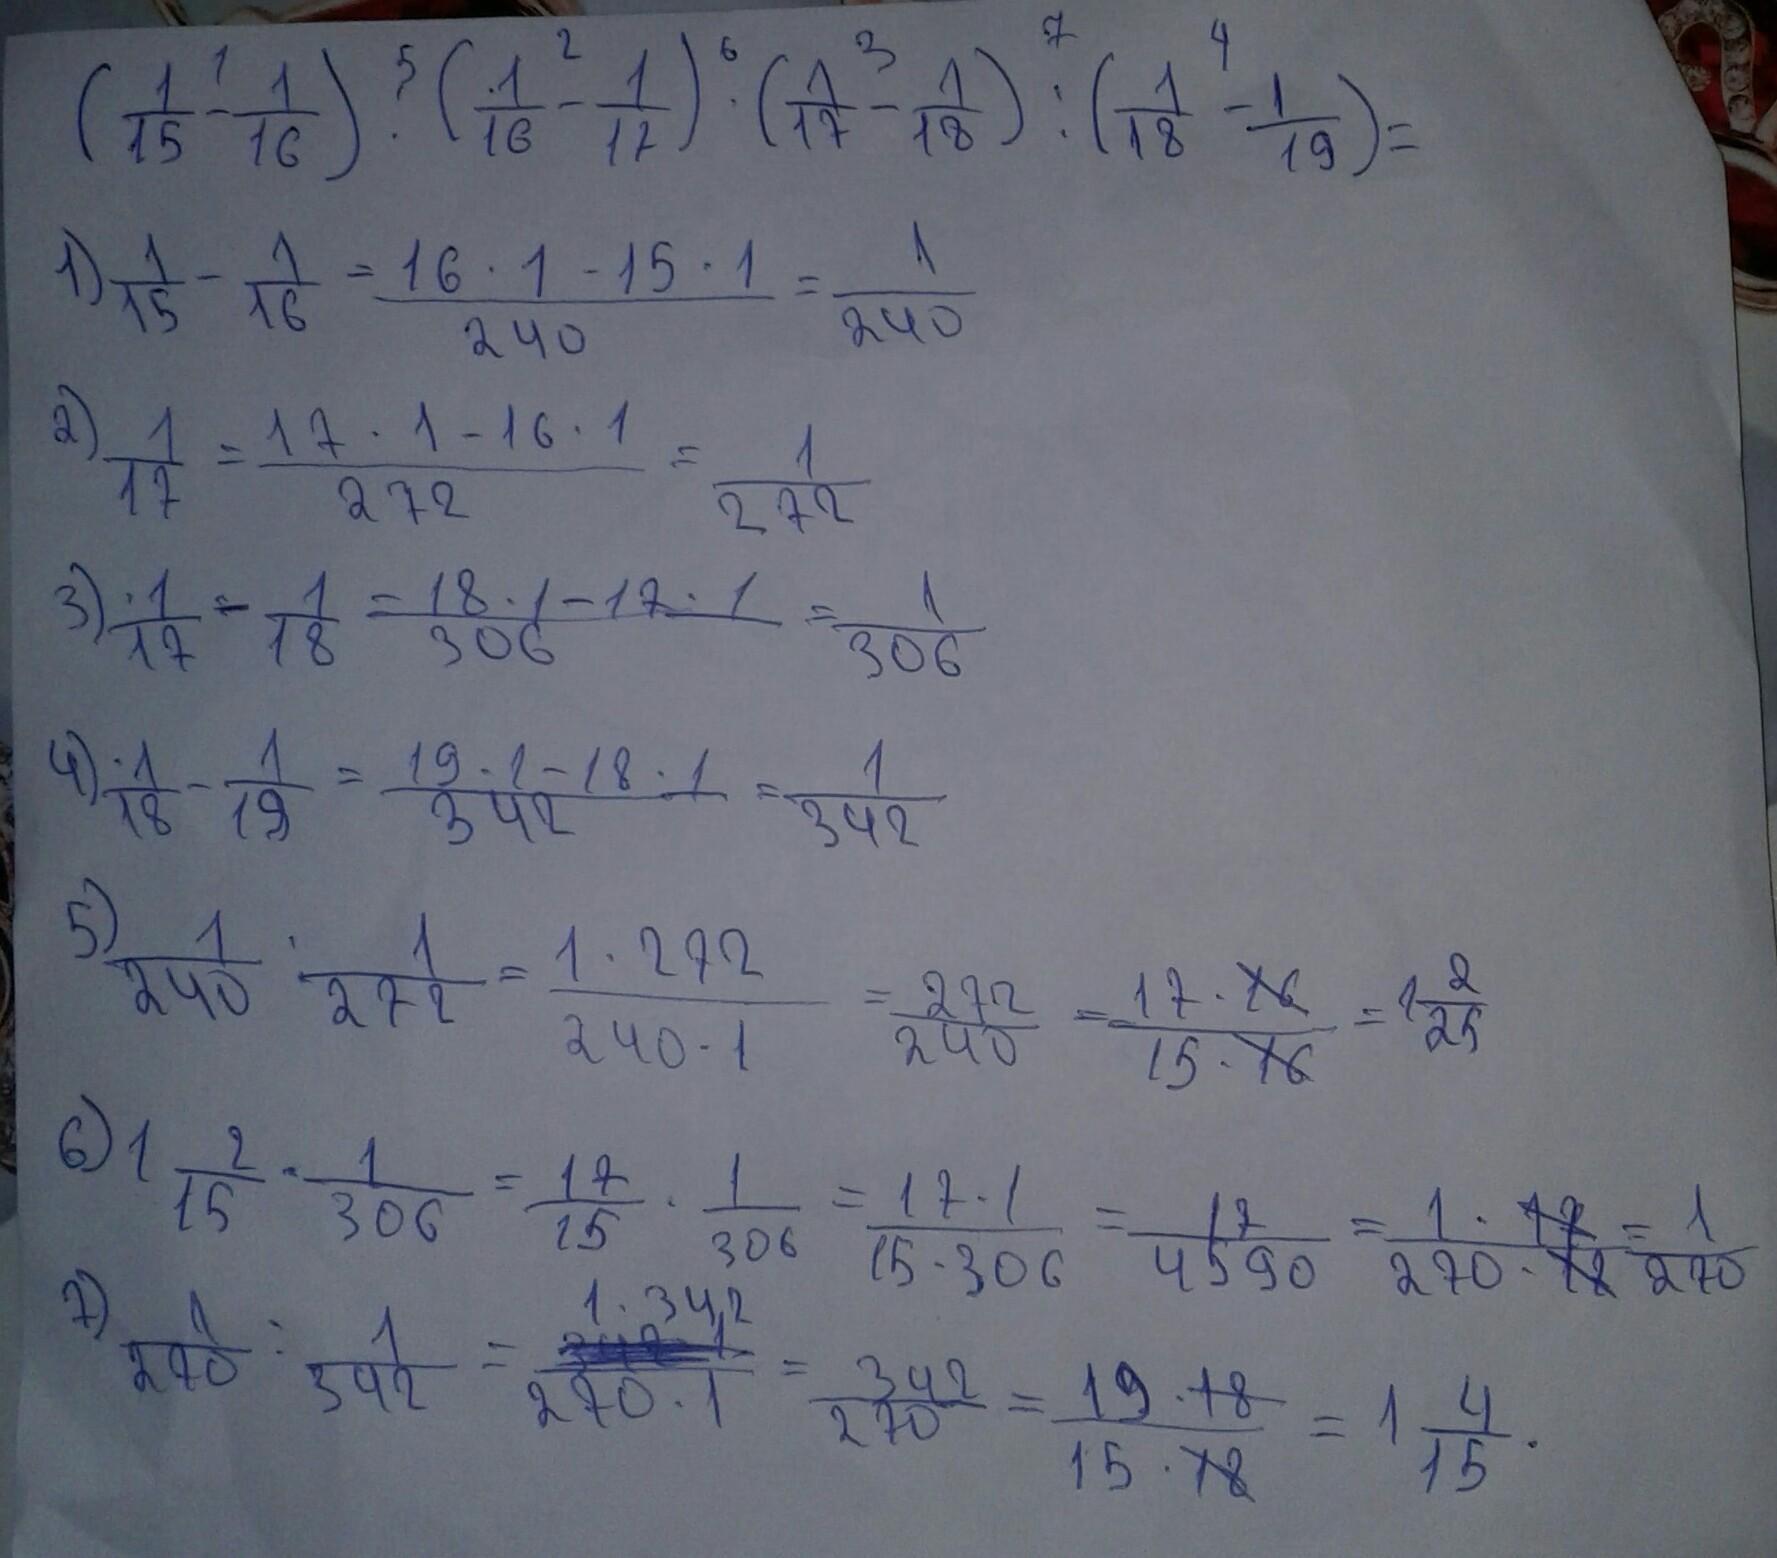 (1/15 - 1/16) : (1/16 - 1/17) · (1/17 - 1/18) : (1/18 - 1/19) =
1 5 2 6 3 7 4
1) 1/15 - 1/16 = (16 · 1 - 15 · 1)/240 = 1/240
2) 1/17 = (17 · 1 - 16 · 1)/272 = 1/272
3) 1/17 - 1/18 = (18 · 1 - 17 · 1)/306 = 1/306
4) 1/18 - 1/19 = (19 · 1 - 18 · 1)/342 = 1/342
5) 1/240 : 1/272 = (1 · 272)/(240 · 1) = 272/240 = (17 · 16)/(15 · 16) = 1 2/25
6) 1 2/15 · 1/306 = 17/15 · 1/306 = (17 · 1)/(15 · 306) = 17/4590 = (1 · 17)/(270 · 17) = 1/270
7) 1/270 : 1/342 = (1 · 342)/(270 · 1) = 342/270 = (19 · 18)/(15 · 18) = 1 4/15.